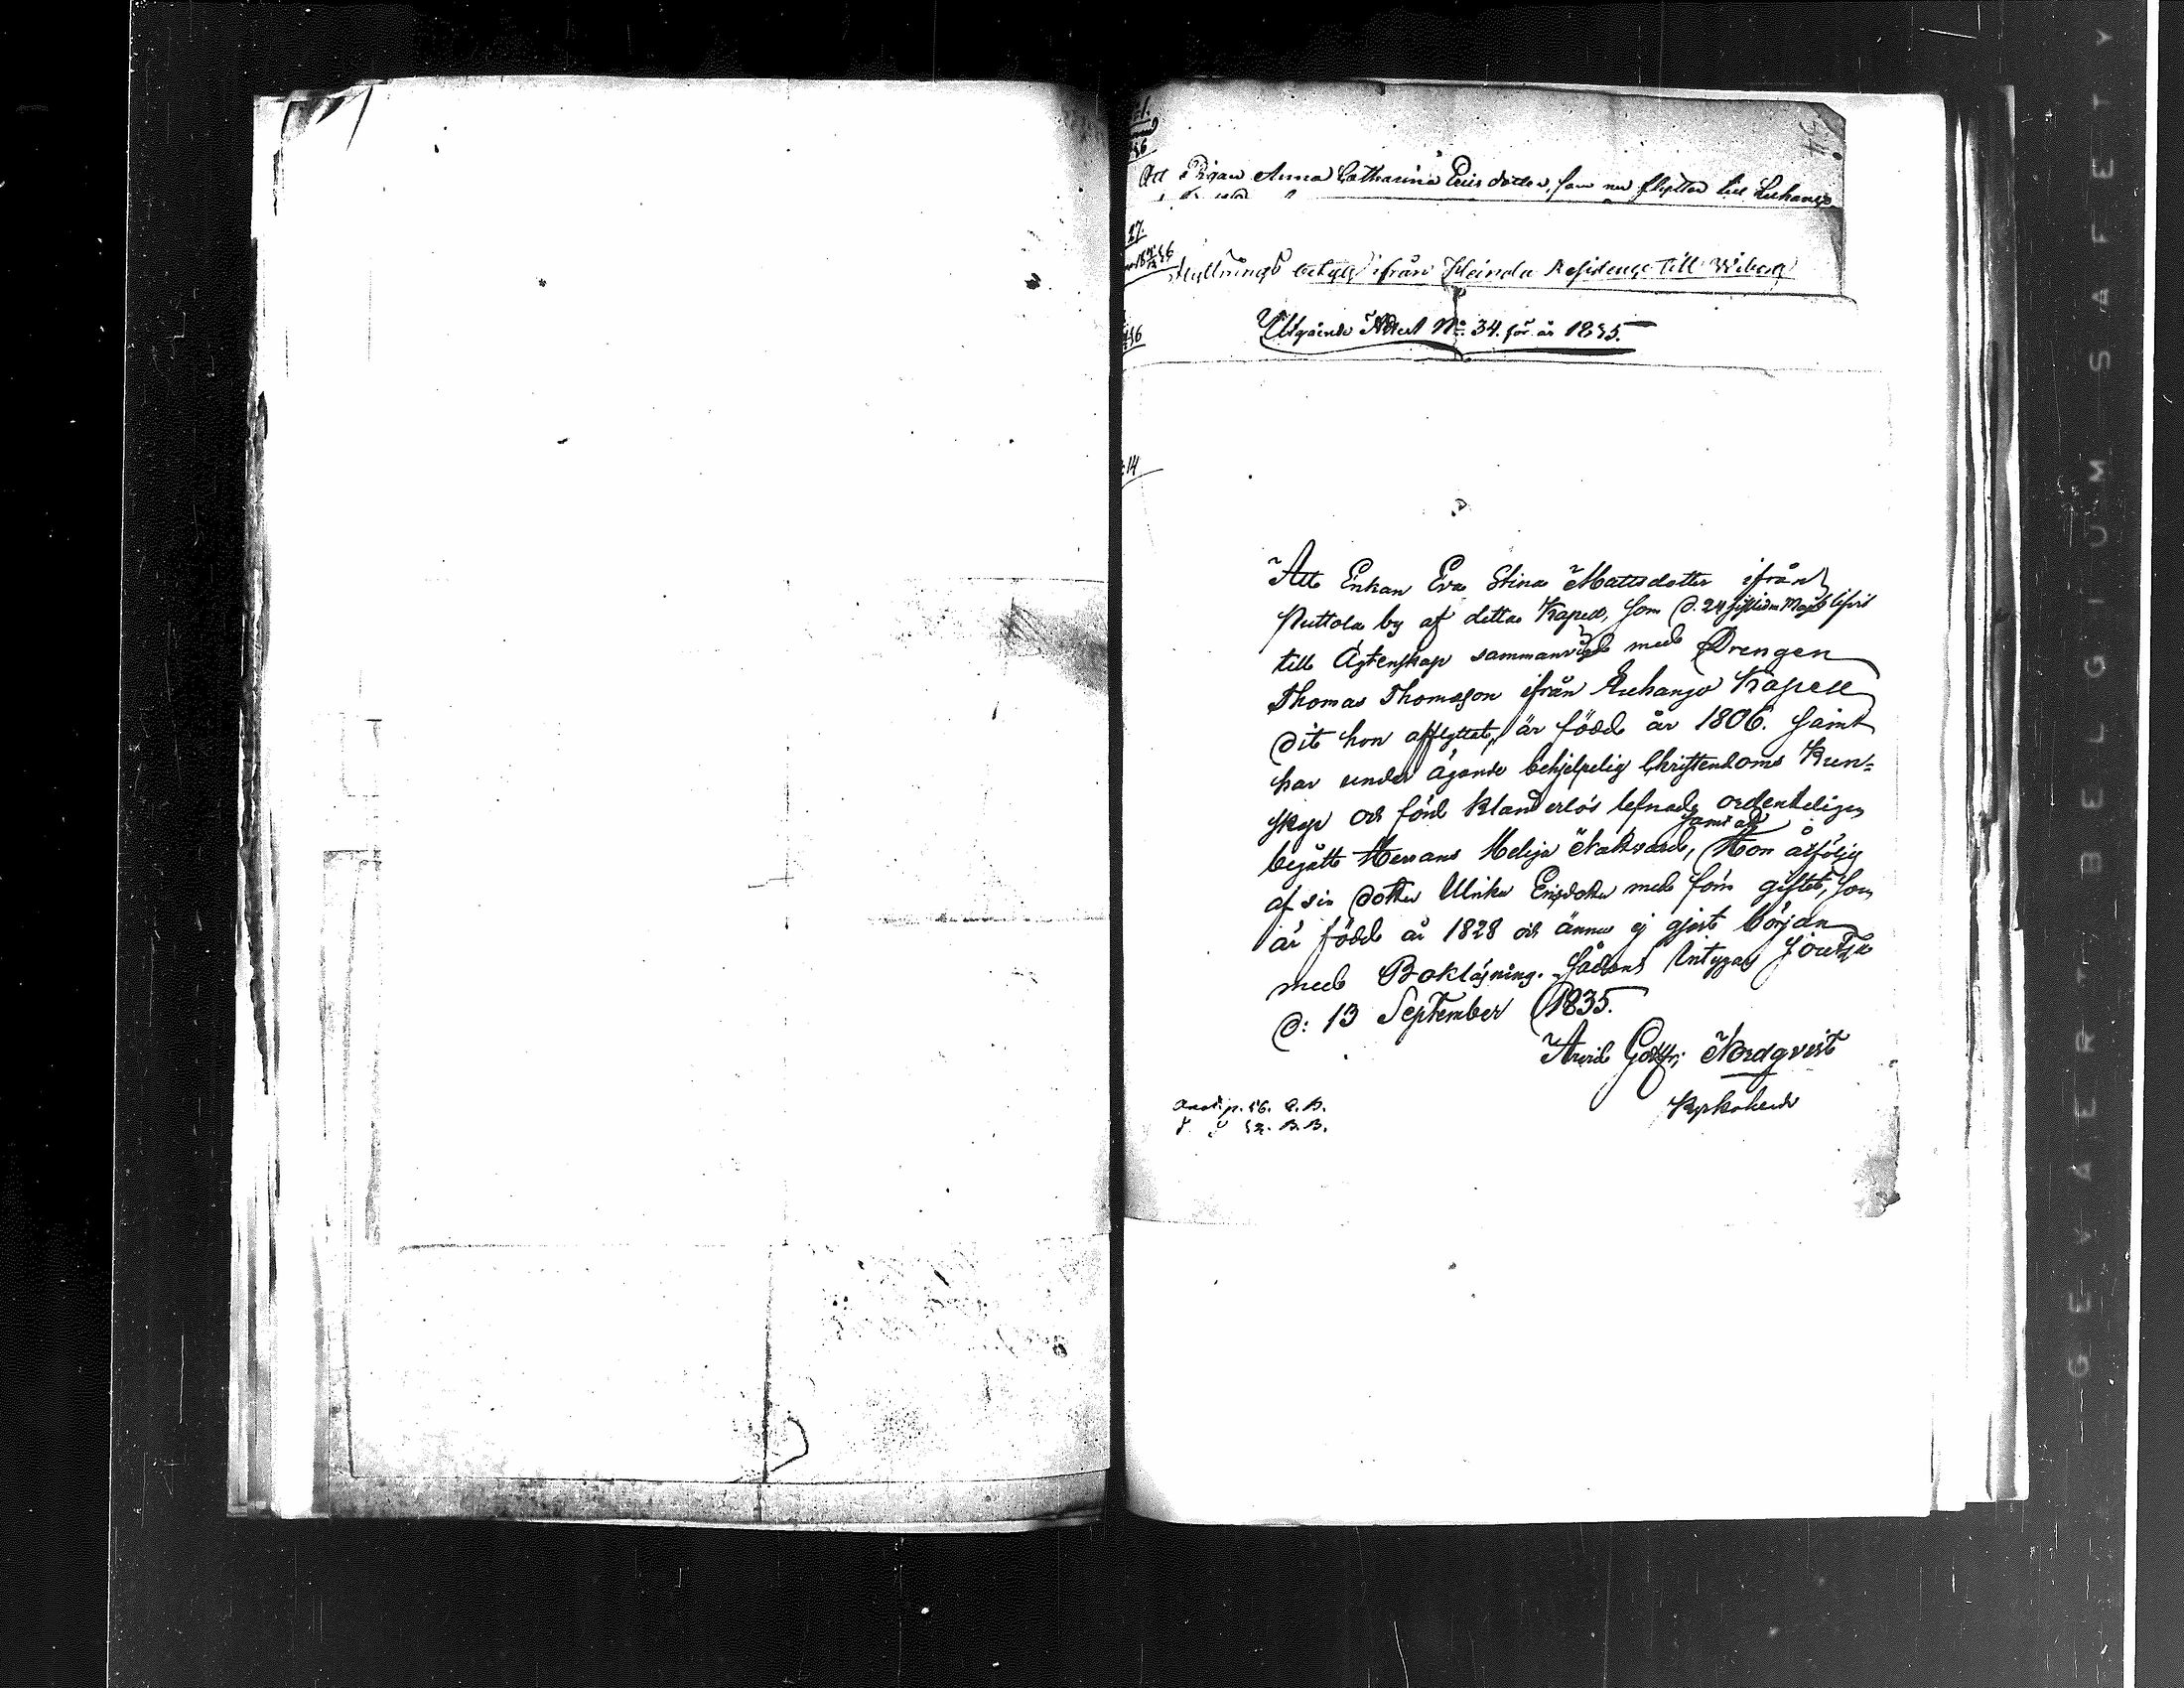 Att Pigan Anna Catharina Ericsdotter, som nu flyttar till Luhango
27.
Flyttnings betyg ifrån Heinola Residence till Wiborg
Utgående Attest No 34. för år 1835.
14
Att Enkan Eva Stina Mattsdotter ifrån
Puttola by af detta Kapell, som d. 24 sistledne Maji blifvit
till Ägtenskap sammanvigd med Drengen
Thomas Thomasson ifrån Luhango Kapell
dit hon afflyttat, är född år 1806. samt
har under ägande behjelpelig Christendoms Kun-
skap och förd klanderlös lefnad, ordenteligen
samt att
begått Herrans Heliga Nattvard, Hon åtföljes
af sin dotter Ulrika Ericsdotter med förra giftet, som
är född år 1828 och ännu ej gjort början
med Bokläsning. Sådant Intygas Joutsa
d: 13 September 1835.
Arvid Gottfr: Nordqvist
Kyrkoherde
p. 56. C.B.
52. B.B.
GEVAERT BELGIUM SAFETY